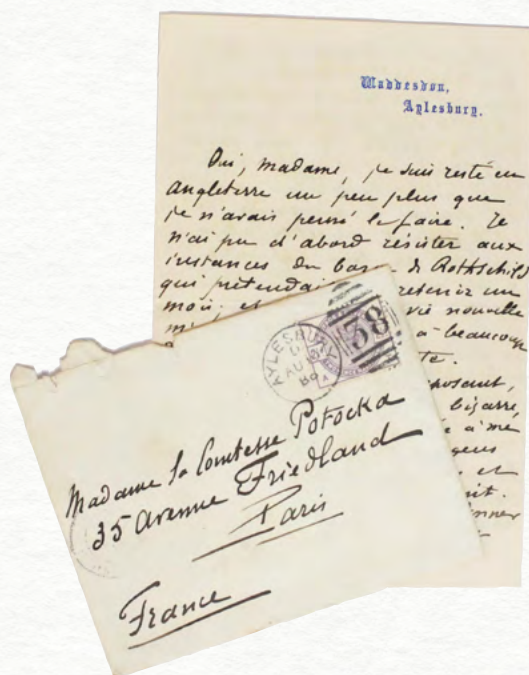 Waddesdon,
Aylesbury.
Oui, madame, je suis resté en
Angleterre un peu plus que
je n'avais pensé le faire. Je
n'ai pu d'abord résister aux
instances du de Rothschild
qui retenir un
mois, et vie nouvelle
à beaucoup
bizarre,
à me
et
AYLESBURY
AU
86
38
Madame la Comtesse Potocka
35 Avenue Friedland
Paris
France